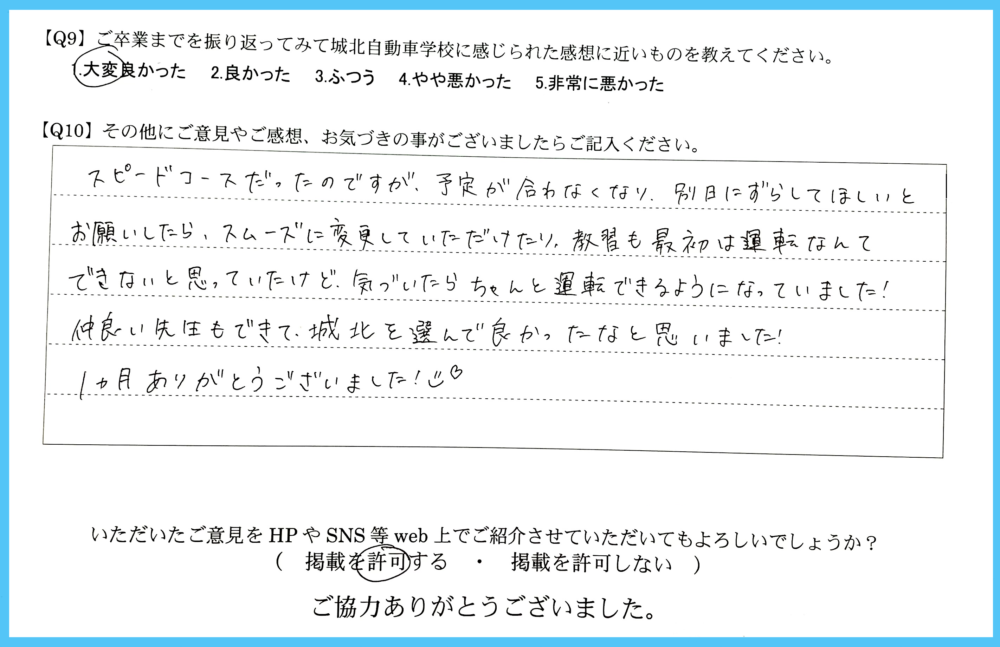 【Q9】ご卒業までを振り返ってみて城北自動車学校に感じられた感想に近いものを教えてください。
1.大変良かった 2.良かった 3.ふつう 4.やや悪かった 5.非常に悪かった
【Q10】その他にご意見やご感想、お気づきの事がございましたらご記入ください。
スピードコースだったのですが、予定が合わなくなり、別日にずらしてほしいと
お願いしたら、スムーズに変更していただけたり、教習も最初は運転なんて
できないと思っていたけど、気づいたらちゃんと運転できるようになっていました!
仲良い先生もできて、城北を選んで良かったなと思いました!
1ヵ月ありがとうございました!
いただいたご意見をHPやSNS等web上でご紹介させていただいてもよろしいでしょうか?
( 掲載を許可する ・ 掲載を許可しない )
ご協力ありがとうございました。